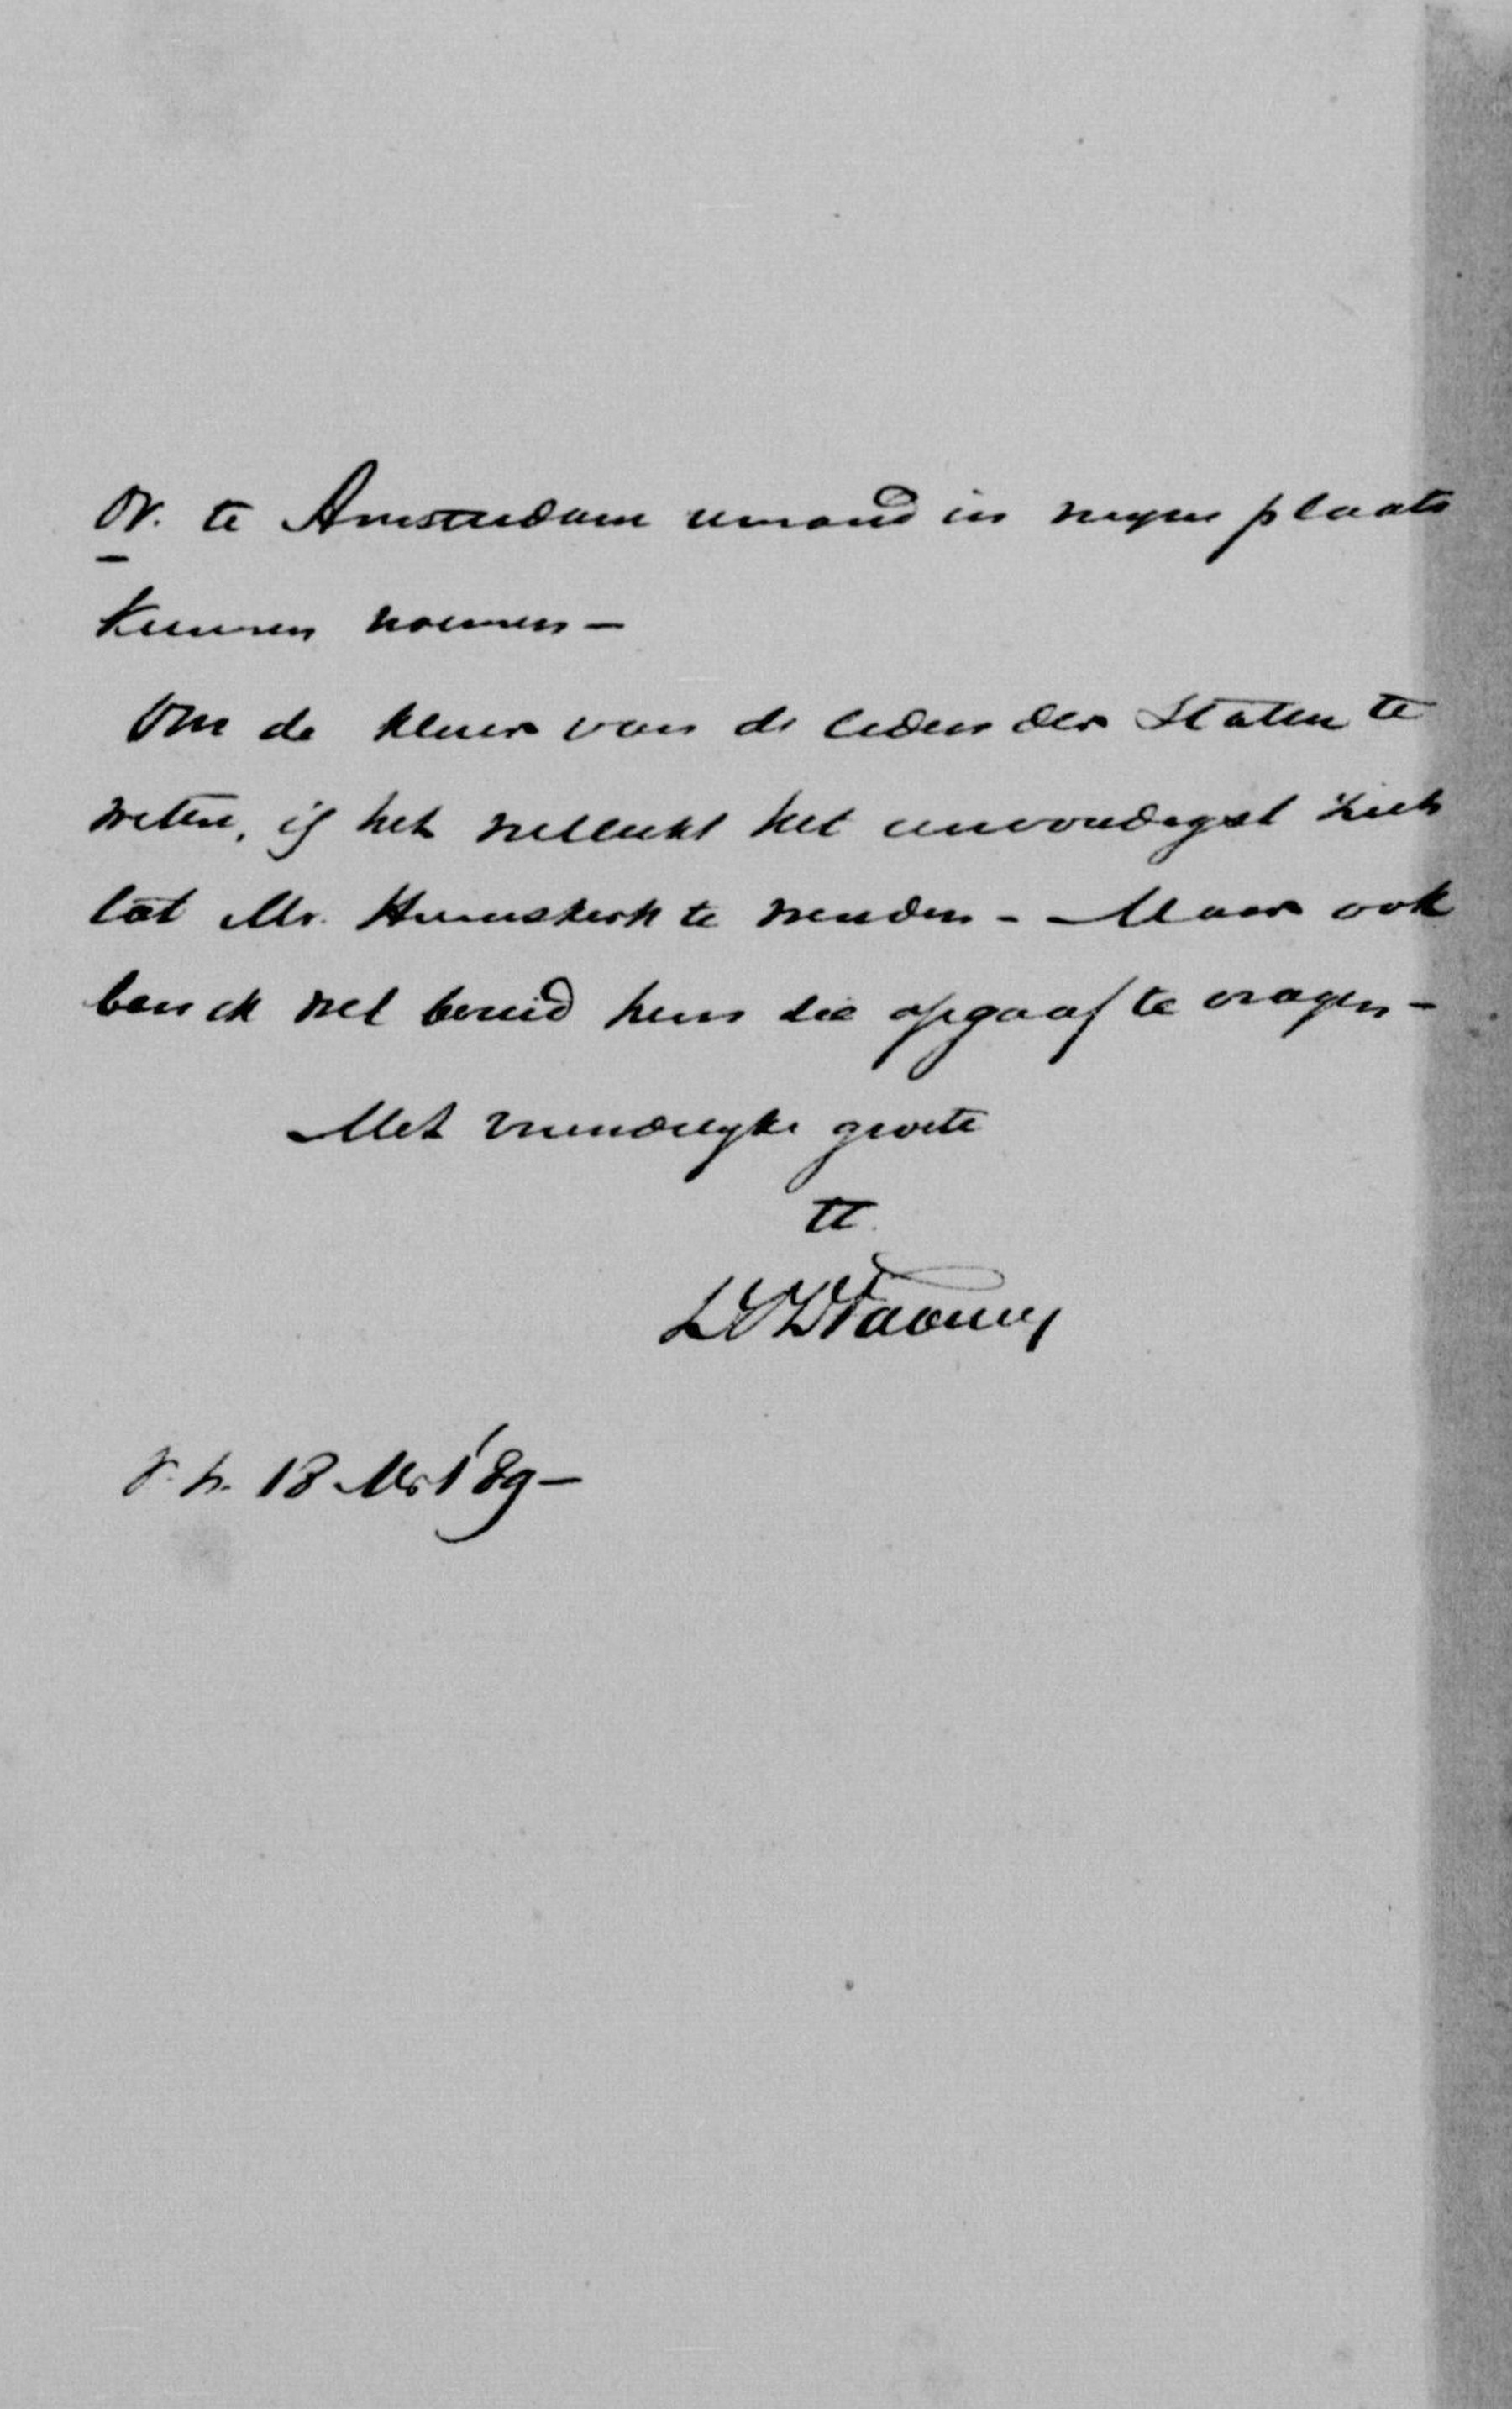 N. te Amsterdam iemand in myne plaats
kunnen noemen –
Om de kleur van de leden der Staten te
weten, is het wellicht het eenvoudigst zich
tot Mr. Heemskerk te wenden – Maar ook
ben ik wel bereid hem die opgaaf te vragen –
Met vriendelyke groete
tt.
18 Mrt 89 –